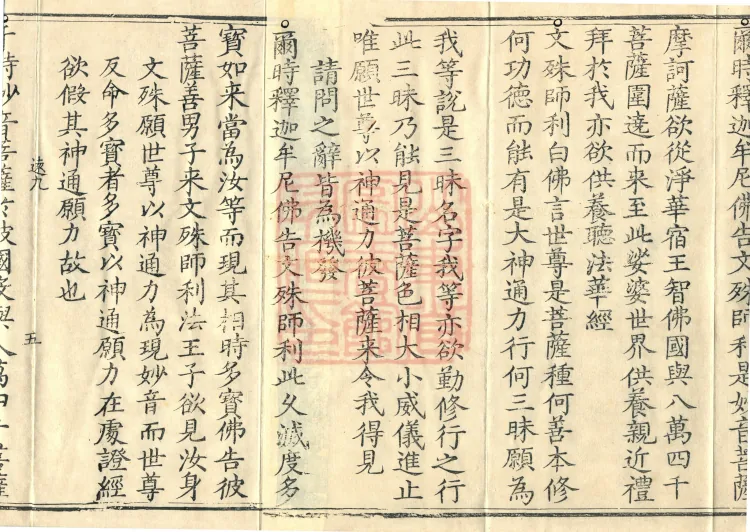 爾時釋迦牟尼佛告文殊師利是妙音菩薩
摩訶薩欲從淨華宿王智佛國與八萬四千
菩薩圍遶而来至此娑婆世界供養親近禮
拜於我亦欲供養聽法華經
文殊師利白佛言世尊是菩薩種何善本修
何功德而能有是大神通力行何三昧願為
我等說是三昧名字我等亦欲勤修行之行
此三昧乃能見是菩薩色相大小威儀進止
唯願世尊以神通力彼菩薩来令我得見
請問之辭皆為機發
爾時釋迦牟尼佛告文殊師利此久滅度多
寶如来當為汝等而現其相時多寶佛告彼
菩薩善男子来文殊師利法王子欲見汝身
文殊願世尊以神通力為現妙音而世尊
反命多寶者多寶以神通願力在處證經
欲假其神通願力故也
五
于時妙音菩薩於彼國沒與八萬四千菩薩